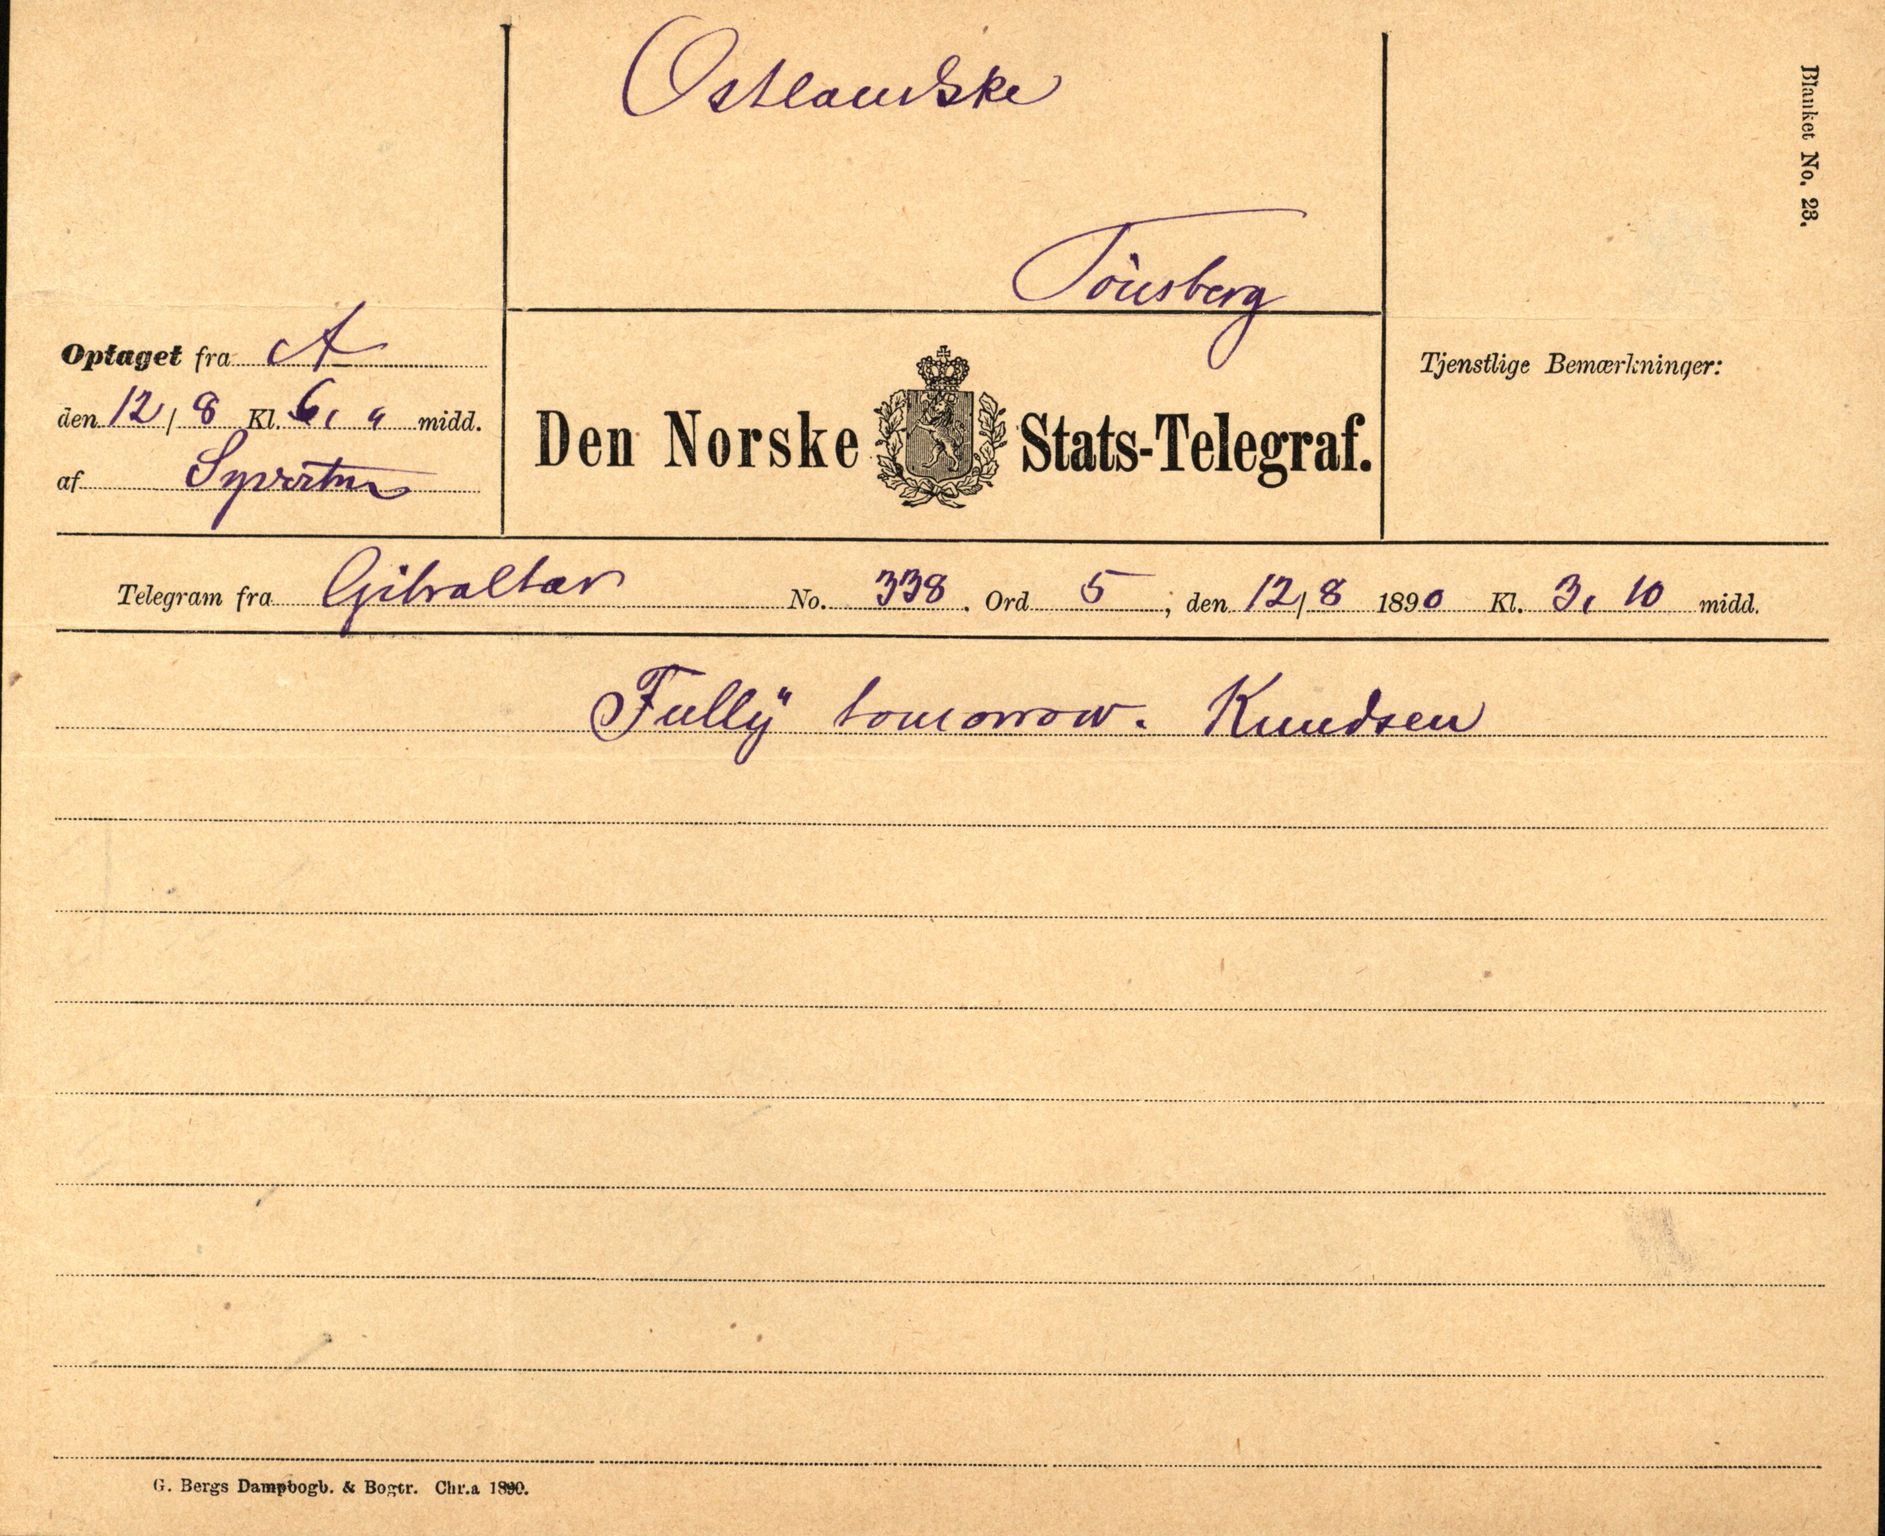 Ostlandske
Blanket No. 23.
Tönsberg
Optaget fra A
den 12/8 Kl. 6, " midd.
af Syvertsen
Den Norske Stats-Telegraf.
Tjenstlige Bemærkninger:
Telegram fra Gibraltar No. 338. Ord 5, den 12/8 1890 Kl. 3, 10 midd.
Fully tomorrow. Knudsen
G. Bergs Dampbogb. & Bogtr. Chr.a 1890.